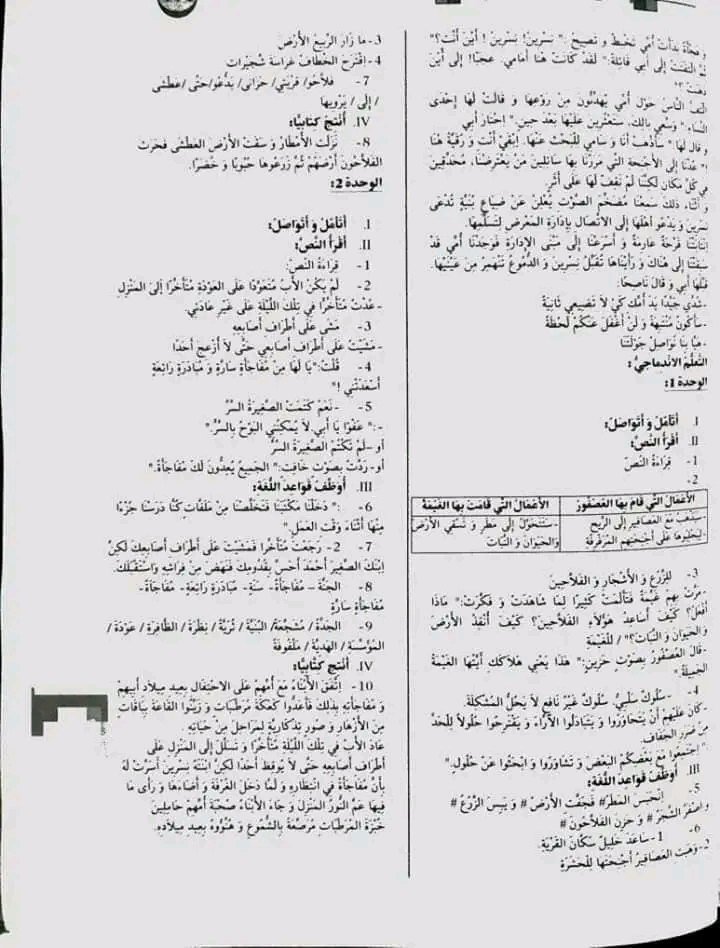 و فجأة بدأت أمّي تخبط و تصيح :" نسرين! نسرين ! أين أنت؟"
ثمّ التفتت إلى أبي قائلة:" لقد كانت هنا أمامي. عجبًا! إلى أين
ذهبت ؟"
التفّ النّاس حول أمّي يهدّئون من روعها و قالت لها إحدى
النّساء :" وسّعي بالك، ستعثرين عليها بعد حين." احتار أبي
و قال لها :" سأذهب أنا و سامي للبحث عنها. ابقي أنت و رقيّة هنا
!" عدنا إلى الأجنحة التي مررنا بها سائلين من يعترضنا، محدّقين
في كلّ مكان لكنّنا لم نقف لها على أثر.
و أثناء ذلك سمعنا مضخّم الصّوت يعلن عن ضياع بنيّة تدعى
نسرين و يدعو أهلها إلى الاتّصال بإدارة المعرض لتسلّمها.
انتابتنا فرحة عارمة و أسرعنا إلى مبنى الإدارة فوجدنا أمّي قد
سبقتنا إلى هناك و رأيناها تقبّل نسرين و الدّموع تنهمر من عينيها.
قبّلها أبي و قال ناصحًا:
-شدّي جيّدًا يد أمّك كي لا تضيعي ثانية
-سأكون منتبهة و لن أغفل عنكم لحظة
-هيّا بنا نواصل جولتنا
التعلّم الاندماجي :
الوحدة 1:
I. أتأمّل و أتواصل:
II. أقرأ النّصّ:
1- قراءة النّصّ
2-
الأعمال التي قام بها العصفور | الأعمال التي قامت بها الغيمة
-سيذهب مع العصافير إلى الرّيح | -ستتحوّل إلى مطر و تسقي الأرض
ليحملوها على أجنحتهم المرفرفة | والحيوان و النّبات
3- للزّرع و الأشجار و الفلاّحين
-مرّت بهم غيمة فتألّمت كثيرًا لما شاهدت و فكّرت:" ماذا
أفعل؟ كيف أساعد هؤلاء الفلاّحين؟ كيف أنقذ الأرض
والحيوان و النّبات؟" / للغيمة
-قال العصفور بصوت حزين:" هذا يعني هلاكك أيّتها الغيمة
الجميلة"
4- -سلوك سلبيّ. سلوك غير نافع لا يحلّ المشكلة
-كان عليهم أن يتحاوروا و يتبادلوا الآراء و يقترحوا حلولاً للحدّ
من ضرر الجفاف.
" اجتمعوا مع بعضكم البعض و تشاوروا و ابحثوا عن حلول."
III. أوظّف قواعد اللّغة:
5- انحبس المطر# فجفّت الأرض # و يبس الزّرع #
و اصفرّ الشّجر # و حزن الفلاّحون #
6- 1-ساعد خليل سكّان القرية.
2-وهبت العصافير أجنحتها للحشرة
3-ما زار الرّبيع الأرض
4-اقترح الخطّاف غراسة شجيرات
7- فلاحو/ قريتي/ حزانى/ يدعو/حتّى /عطشى
/ إلى / يرويها
IV. أنتج كتابيًّا:
8- نزلت الأمطار و سقت الأرض العطشى فحرث
الفلاّحون أرضهم ثمّ زرعوها حبوبًا و خضرًا.
الوحدة 2:
I. أتأمّل و أتواصل:
II. أقرأ النّصّ:
1- قراءة النّصّ:
2- لم يكن الأب متعوّدًا على العودة متأخّرًا إلى المنزل
-عدت متأخّرًا في تلك اللّيلة على غير عادتي.
3- مشى على أطراف أصابعه
-مشيت على أطراف أصابعي حتّى لا أزعج أحدًا
4- قلت:"يا لها من مفاجأة سارّة و مبادرة رائعة
أسعدتني !"
5- -نعم كتمت الصّغيرة السّرّ
-:" عفوًا يا أبي لا يمكنني البوح بالسّرّ."
أو -لم تكتم الصّغيرة السّرّ
أو- ردّت بصوت خافت:" الجميع يعدّون لك مفاجأة."
III. أوظّف قواعد اللّغة:
6- :" دخلنا مكتبنا فتخلّصنا من ملفّات كنّا درسنا جزءًا
منها أثناء وقت العمل."
7- 2- رجعت متأخّرا فمشيت على أطراف أصابعك لكنّ
ابنك الصّغير أحمد أحسّ بقدومك فنهض من فراشه واستقبلك.
8- الجنّة – مفاجأة– سنة– مبادرة رائعة– مفاجأة–
مفاجأة سارّة
9- الجدّة/ مشجّعة/ البنيّة / ثريّة/ نظرة/ الظّافرة / عودة /
المؤسّسة / الهديّة / ملفوفة
IV. أنتج كتابيًّا:
10- اتّفق الأبناء مع أمّهم على الاحتفال بعيد ميلاد أبيهم
و مفاجأته بذلك فأعدّوا كعكة مرطّبات و زيّنوا القاعة بباقات
من الأزهار و صور تذكاريّة لمراحل من حياته .
عاد الأب في تلك اللّيلة متأخّرًا و تسلّل إلى المنزل على
أطراف أصابعه حتّى لا يوقظ أحدا لكنّ ابنته نسرين أسرّت له
بأنّ مفاجأة في انتظاره و لمّا دخل الغرفة و أضاءها و رأى ما
فيها عمّ النّور المنزل و جاء الأبناء صحبة أمّهم حاملين
خبزة المرطّبات مرصّعة بالشّموع و هنّؤوه بعيد ميلاده.